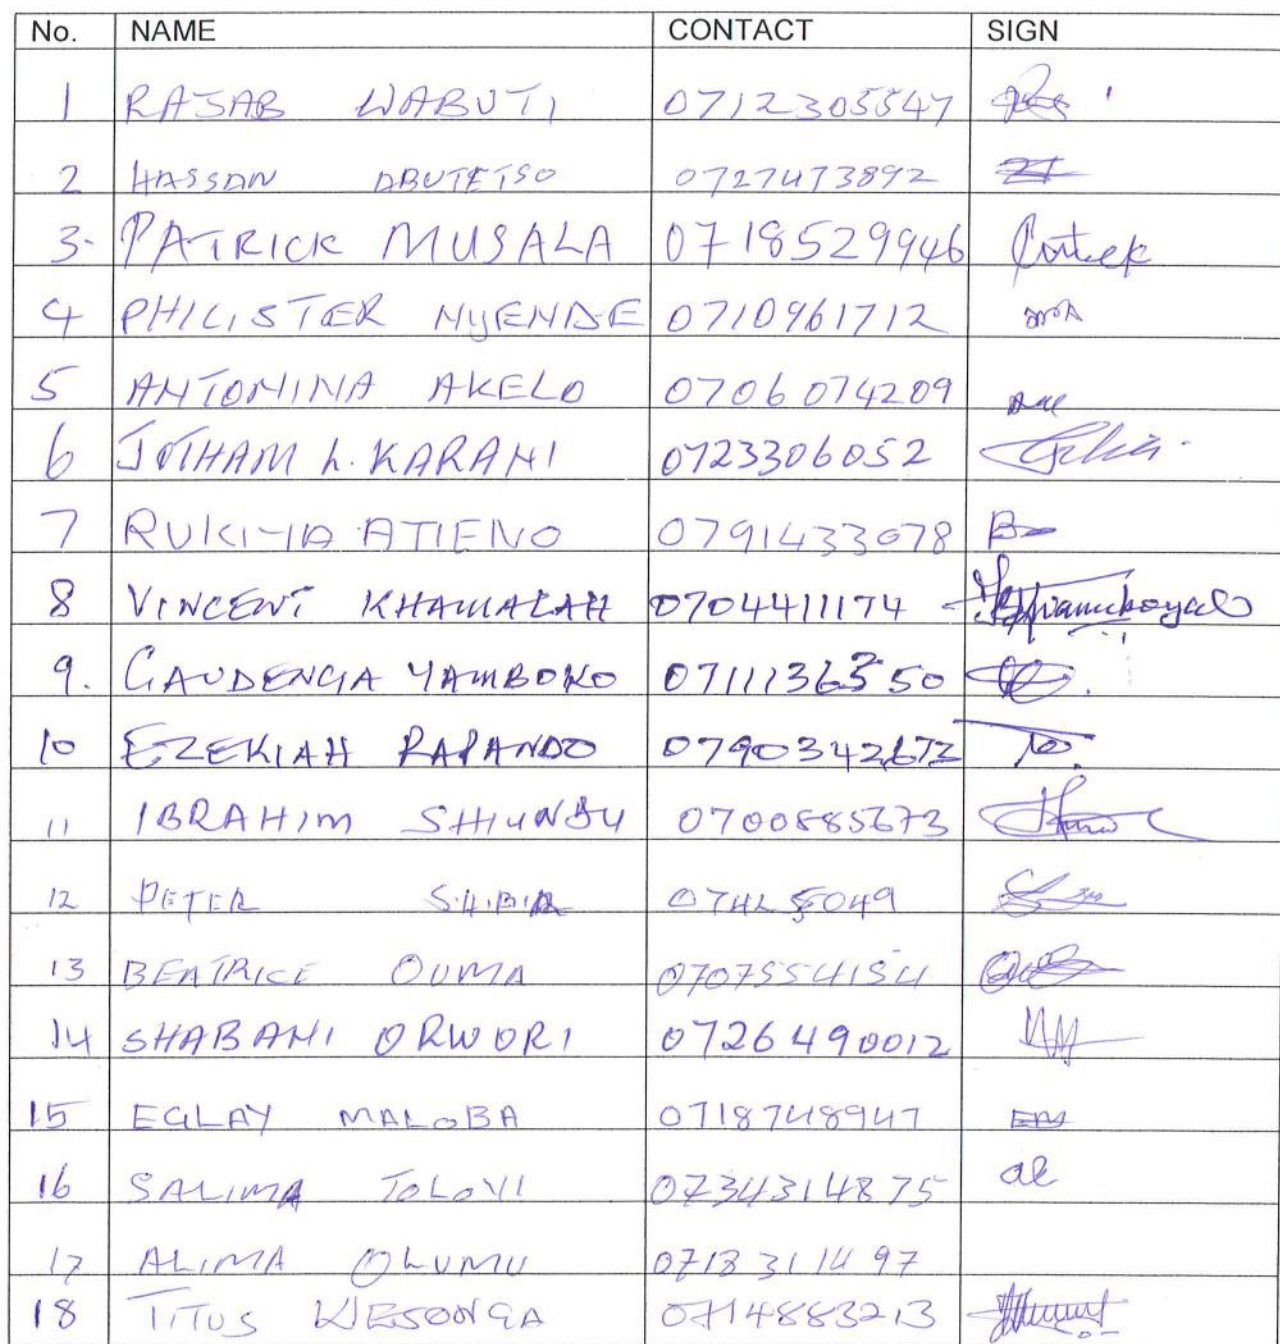 No. NAME CONTACT SIGN
1 RAJAB WABUTI 0712305547
2 HASSAN ABUTETSO 0727473892
3. PATRICK MUSALA 0718529946
4 PHILISTER NYENDE 0710961712
5 ANTONINA AKELO 0706074209
6 JOTHAM L. KARANI 0723306052
7 RUKIYA ATIENO 0791433078
8 VINCENT KHAMALAH 0704411174
9. GAUDENCIA YAMBOKO 0711136350
10 EZEKIAH RAPANDO 0790342673
11 IBRAHIM SHIUNDU 0700885673
12 PETER
13 BEATRICE OUMA 0707554154
14 SHABANI ORWORI 0726490012
15 EGLAY MALOBA 0718748947 EM
16 SALIMA TOLOVI 0734314875
17 ALIMA OLUMU 0713311497
18 TITUS WESONGA 0714883213